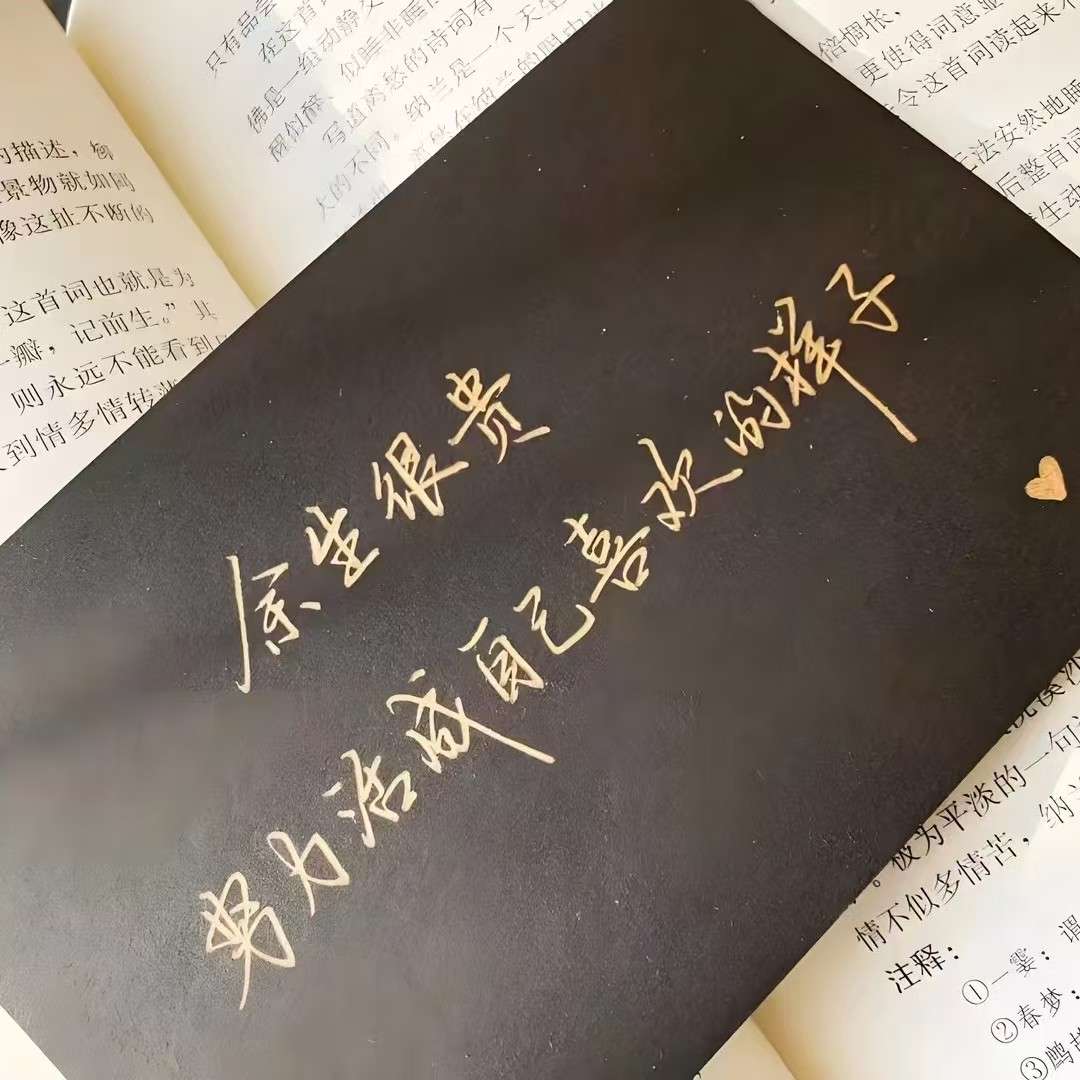 只有品尝
在这首词
是一组动静交
佛是
似睡非睡
醒似醉
写道闲愁的诗词有
大的不同。纳兰是一个天生
的描述，
景物就如同
像这扯不断的
这首词也就是为
瓣，记前生。”其
则永远不能看到
到情多情转
倍惆怅，
更使得词意显
令这首词读起来不
法安然地睡
后整首词
生动
余生很贵
努力活成自己喜欢的样子
浣溪沙
。极为平淡的一句
情不似多情苦，纳
注释：
①一霎：谓
②春梦：
③鹧